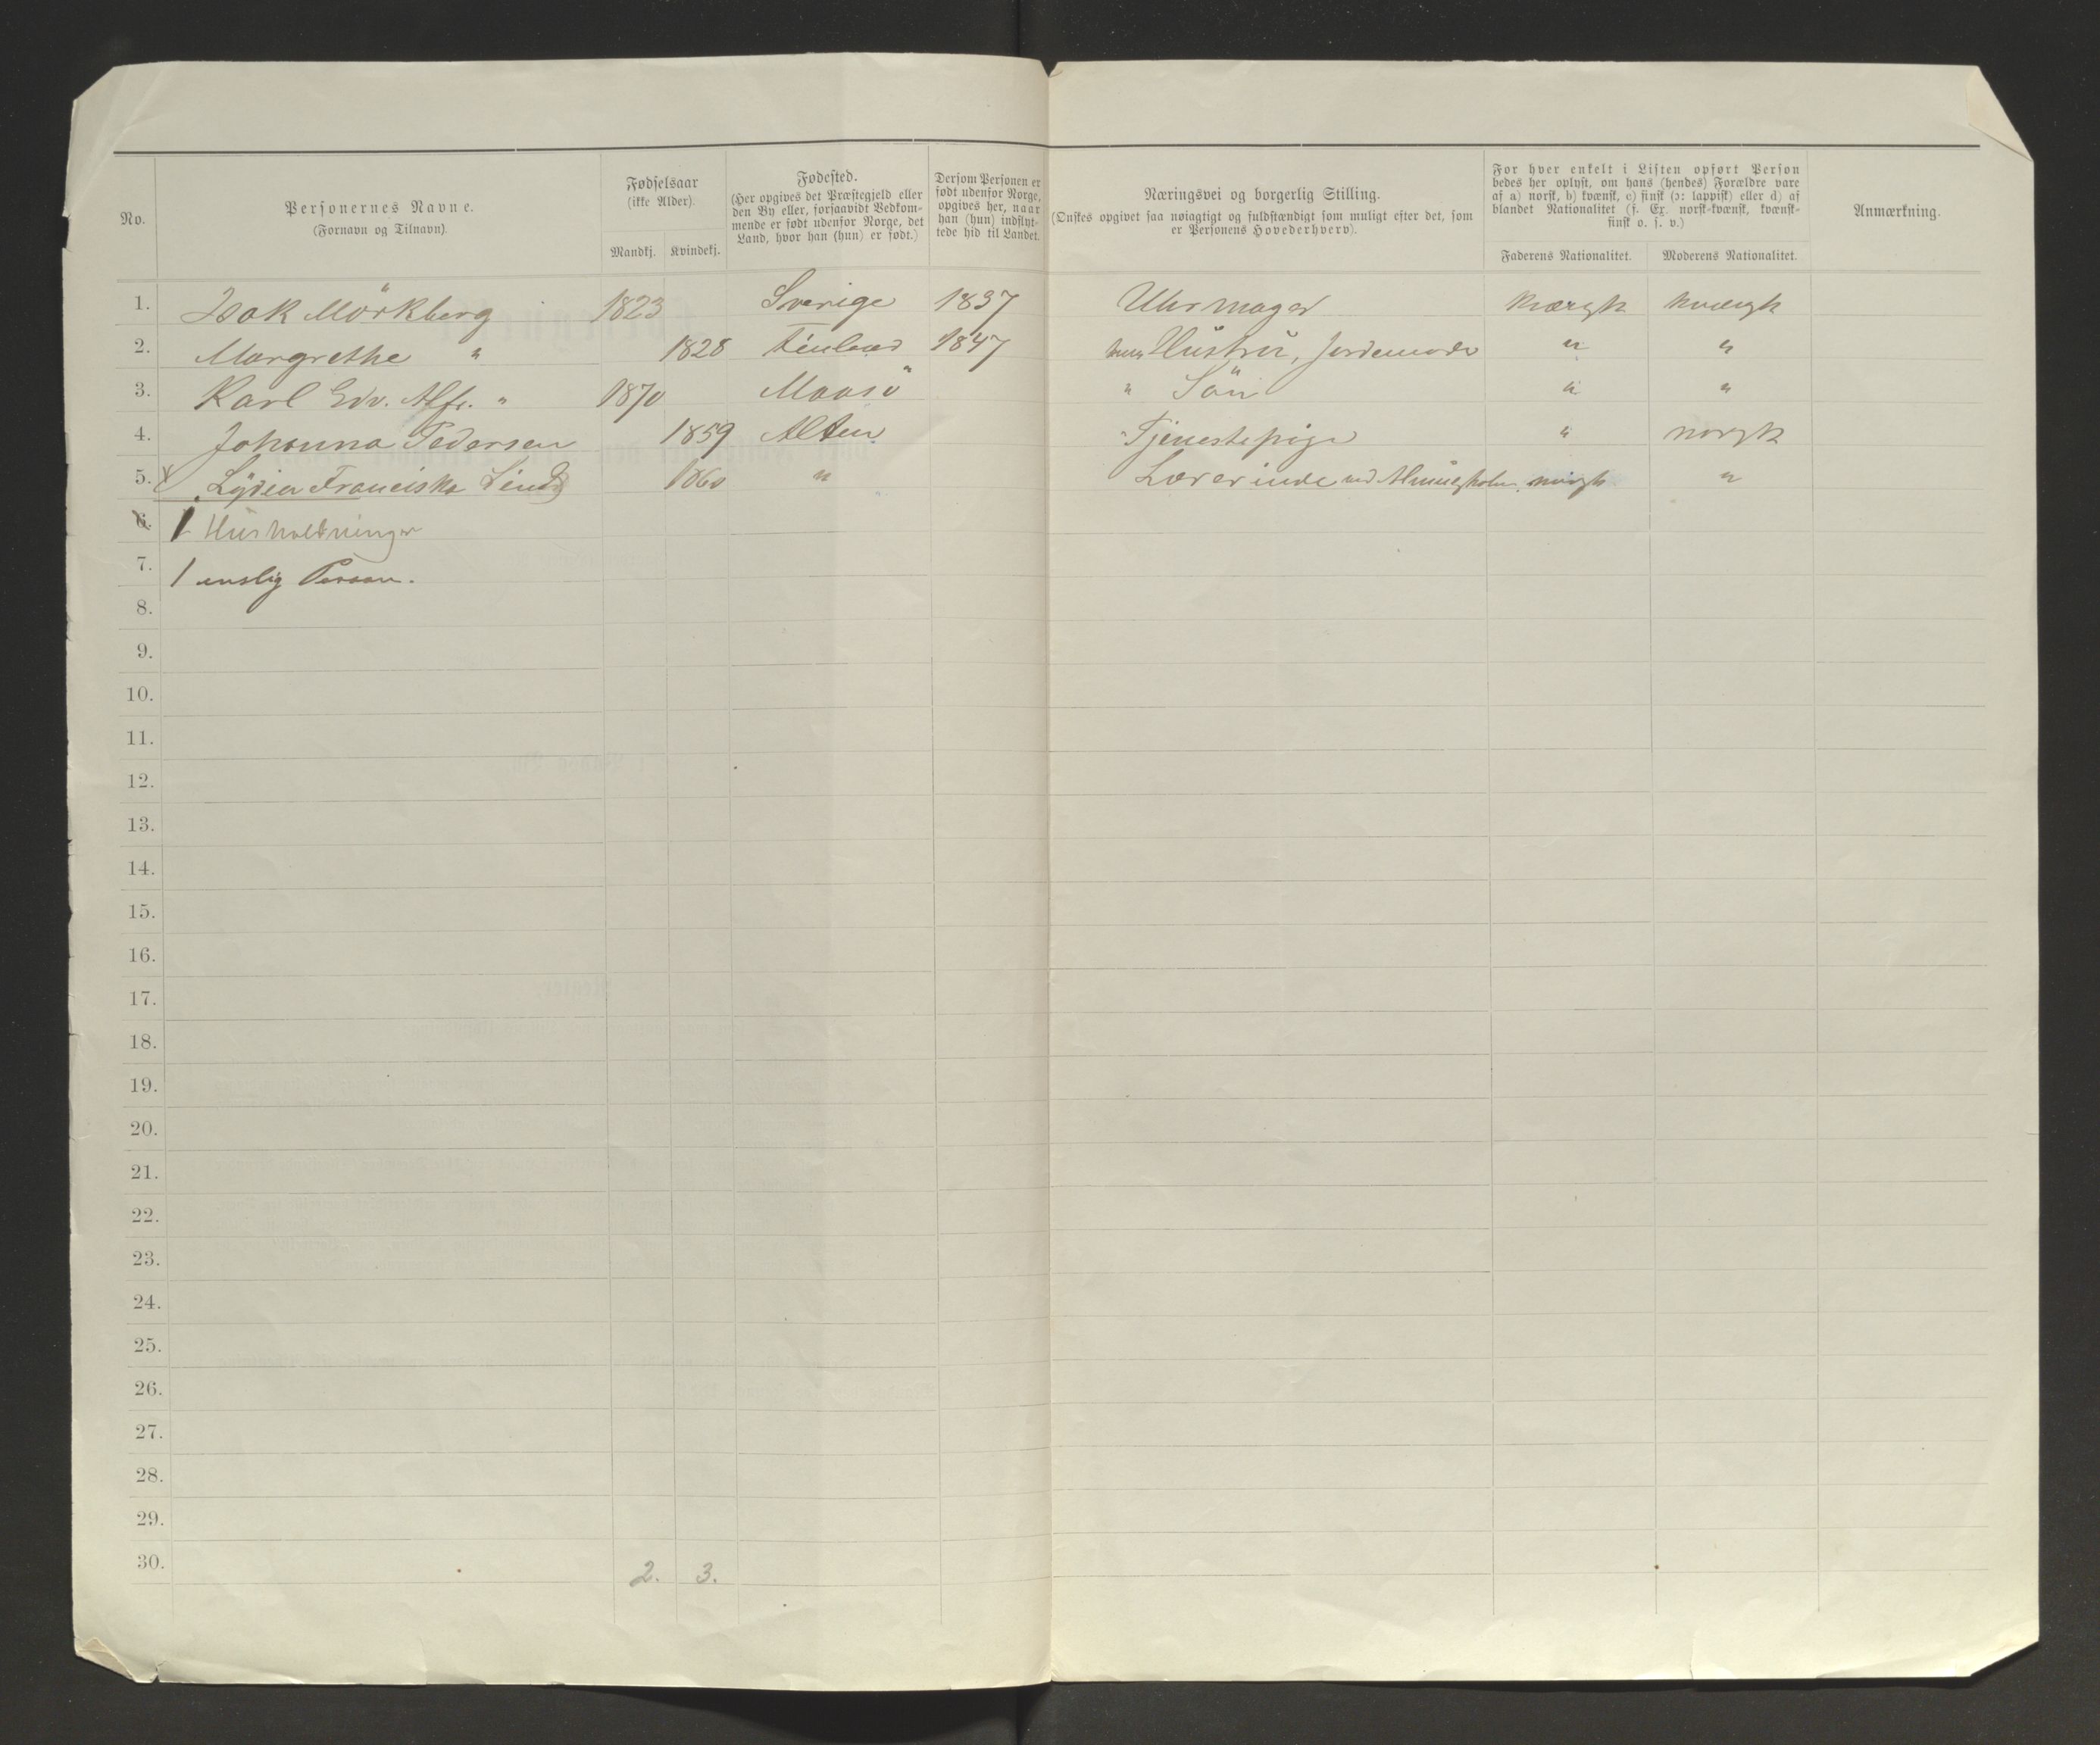 No.
Personernes Navne.
(Fornavn og Tilnavn).
Fødselsaar
(ikke Alder).
Mandkj. Kvindekj.
Fødested.
(Her opgives det Præstegjeld eller
den By eller, forsaavidt Vedkom-
mende er født udenfor Norge, det
Land, hvor han (hun) er født.)
Dersom Personen er
født udenfor Norge,
opgives her, naar
han (hun) indflyt-
tede hid til Landet.
Næringsvei og borgerlig Stilling.
(Ønskes opgivet saa nøiagtigt og fuldstændigt som muligt efter det, som
er Personens Hovederhverv).
For hver enkelt i Listen opført Person
bedes her oplyst, om hans (hendes) Forældre vare
af a) norsk, b) kvænsk, c) finsk (ɔ: lappisk) eller d) af
blandet Nationalitet (f. Ex. norsk-kvænsk, kvænsk-
finsk o. s. v.)
Faderens Nationalitet. Moderens Nationalitet.
Anmærkning.
1. Isak Mörkberg 1823 Sverige 1837 Uhrmager kvænsk kvænsk
2. Margrethe " 1828 Finland 1847 hans Hustru, Jordemoder " "
3. Karl Edv. Alfr. " 1870 Maasö " Sön " "
4. Johanna Pedersen 1859 Alten " Tjenestepige " norsk
5. Lydia Franciska Lind 1860 " Lærerinde ved Almueskolen norsk "
6. 1 Husholdninger
7. 1 enslig Person.
8.
9.
10.
11.
12.
13.
14.
15.
16.
17.
18.
19.
20.
21.
22.
23.
24.
25.
26.
27.
28.
29.
30. 2. 3.